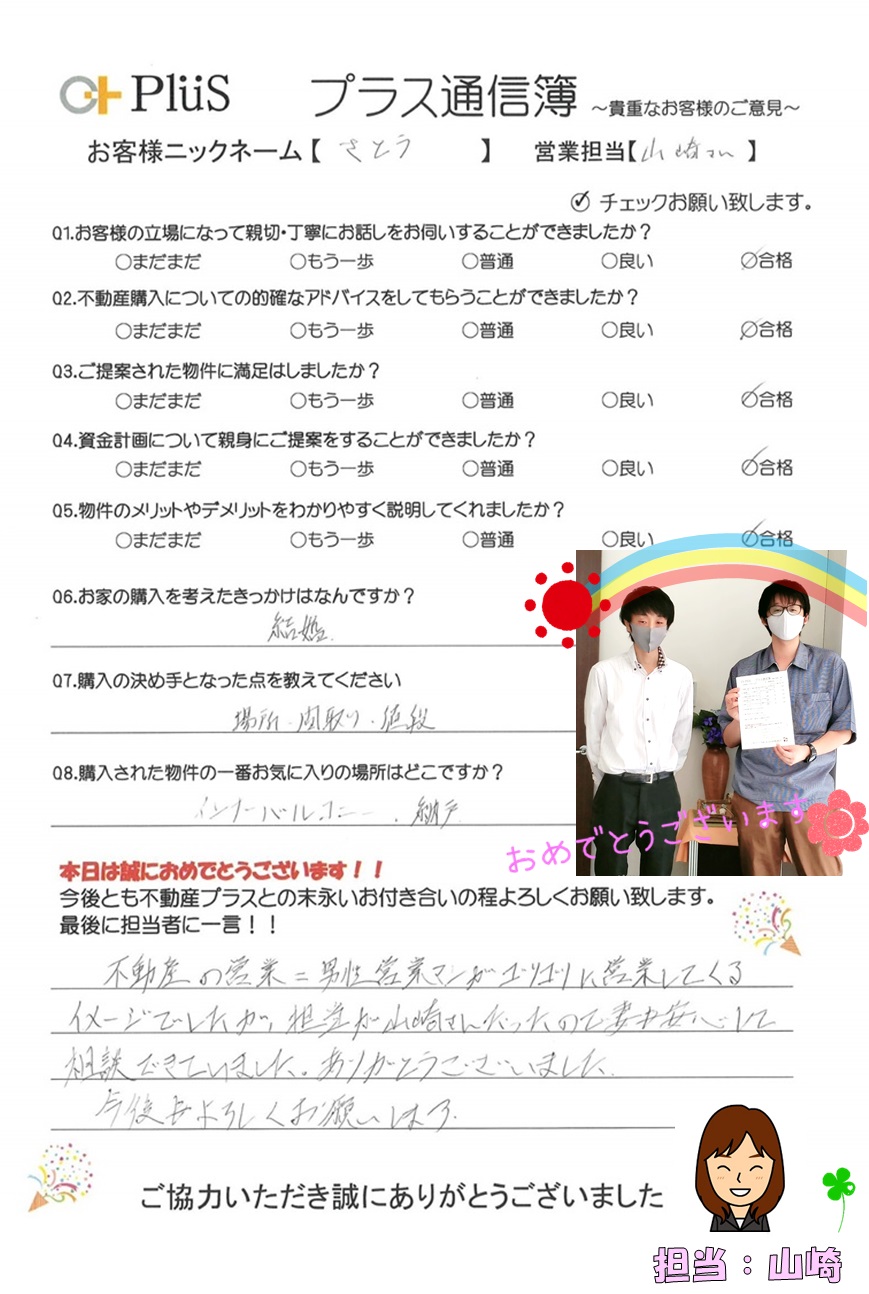 PlüS プラス通信簿 ～貴重なお客様のご意見～
お客様ニックネーム【 さとう 】 営業担当【山崎さん】
チェックお願い致します。
Q1.お客様の立場になって親切・丁寧にお話しをお伺いすることができましたか？
○まだまだ ○もう一歩 ○普通 ○良い ○合格
Q2.不動産購入についての的確なアドバイスをしてもらうことができましたか？
○まだまだ ○もう一歩 ○普通 ○良い ○合格
Q3.ご提案された物件に満足はしましたか？
○まだまだ ○もう一歩 ○普通 ○良い ○合格
Q4.資金計画について親身にご提案をすることができましたか？
○まだまだ ○もう一歩 ○普通 ○良い ○合格
Q5.物件のメリットやデメリットをわかりやすく説明してくれましたか？
○まだまだ ○もう一歩 ○普通 ○良い ○合格
Q6.お家の購入を考えたきっかけはなんですか？
結婚
Q7.購入の決め手となった点を教えてください
場所・間取り・値段
Q8.購入された物件の一番お気に入りの場所はどこですか？
インナーバルコニー、納戸
おめでとうございます
本日は誠におめでとうございます！！
今後とも不動産プラスとの末永いお付き合いの程よろしくお願い致します。
最後に担当者に一言！！
不動産の営業＝男性営業マンがゴリゴリに営業してくる
イメージでしたが、担当が山崎さんだったので妻も安心して
相談できていました。ありがとうございました。
今後もよろしくお願いします。
ご協力いただき誠にありがとうございました
担当：山崎